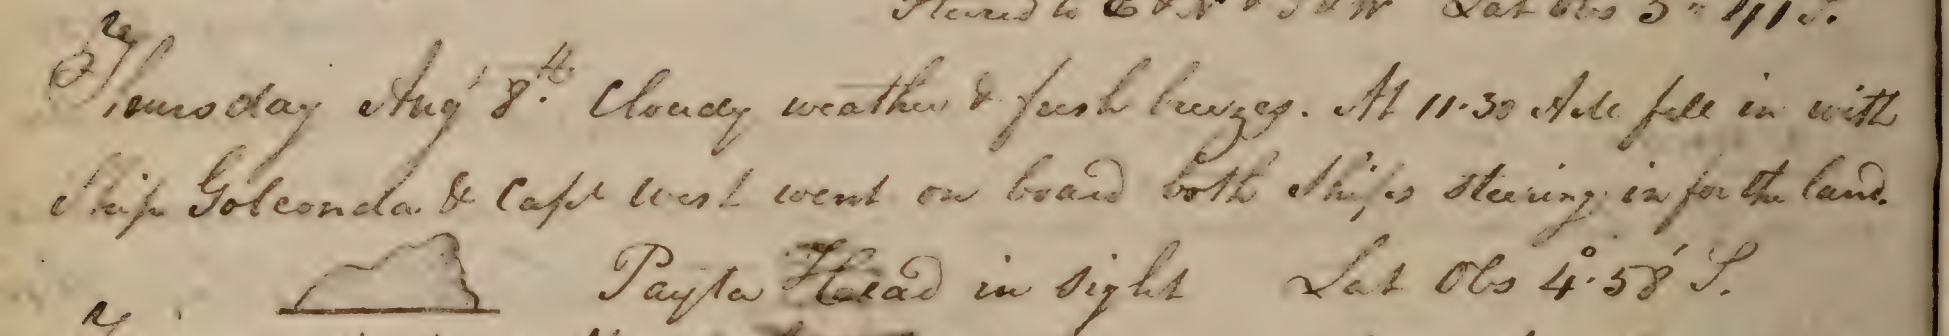 Steered to E & N & S & W Lat Obs 5° 41 S.
Thursday Augt 8th. Cloudy weather & fresh breezes. At 11.30 AM fell in with
Ship Golconda & Capt West went on board both Ships steering in for the land.
Payta Head in sight Lat Obs 4°.58' S.